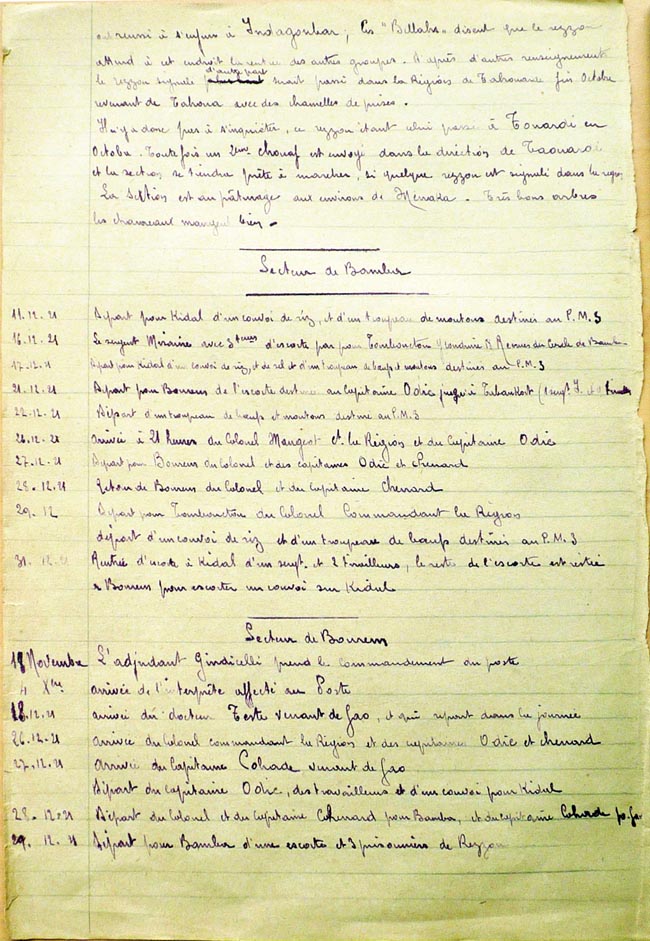 ont réussi à s'enfuir à Indagouhar, les "Bellahs" disent que le rezzou
attend à cet endroit la rentrée des autres groupes. D'après d'autres renseignements
le rezzou signalé d'autre part serait passé dans la Région de Tahouante fin Octobre
revenant de Tahoua avec des chamelles de prises.
Il n'y a donc pas à s'inquiéter, ce rezzou étant celui passé à Tonardi en
Octobre. Toutefois un 2ème chouaf est envoyé dans la direction de Taouardi
et la section se tiendra prête à marcher, si quelque rezzou est signalé dans la région
La Section est au pâturage aux environs de Menaka. Très bons arbres
les chameaux mangent bien -
Secteur de Bamba
11.12.21 Départ pour Kidal d'un convoi de riz, et d'un troupeau de moutons destinés au P.M.3
16.12.21 Le sergent avec 3 d'escorte par pour Tombouctou du Cercle de Bamba
17.12.21 Départ pour Kidal d'un convoi de riz, et de sel et d'un troupeau de boeufs et moutons destinés au P.M.3
21.12.21 Départ pour Bourem de l'escorte destinée au Capitaine Odic jusqu'à Tabankort (1 sergt
22.12.21 Départ d'un troupeau de boeufs et moutons destiné au P.M.3
26.12.21 arrivée à 21 heures du Colonel Mangeot Ct. la Région et du Capitaine Odic
27.12.21 Départ pour Bourem du Colonel et des capitaines Odic et Chenard
28.12.21 Retour de Bourem du Colonel et du Capitaine Chenard
29.12 Départ pour Tombouctou du Colonel Commandant la Région
départ d'un convoi de riz et d'un troupeau de boeufs destinés au P.M.3
31.12.21 Rentrée d'escorte à Kidal d'un sergt. et 2 tirailleurs, le reste de l'escorte est restée
à Bourem pour escorter un convoi sur Kidal
Secteur de Bourem
18 Novembre L'adjudant Giudicelli prend le Commandement du poste
4 Xbre arrivée de l'interprète affecté au Poste
18.12.21 arrivée du docteur Teste venant de Gao, et qui repart dans la journée
26.12.21 arrivée du Colonel commandant la Région et des capitaines Odic et Chenard
27.12.21 arrivée du Capitaine Cohade venant de Gao
Départ du Capitaine Odic, des travailleurs et d'un convoi pour Kidal
28.12.21 Départ du Colonel et du Capitaine Chenard pour Bamba, et du Capitaine Cohade pr. Gao
29.12.21 Départ pour Bamba d'une escorte et 3 prisonniers de Rezzou